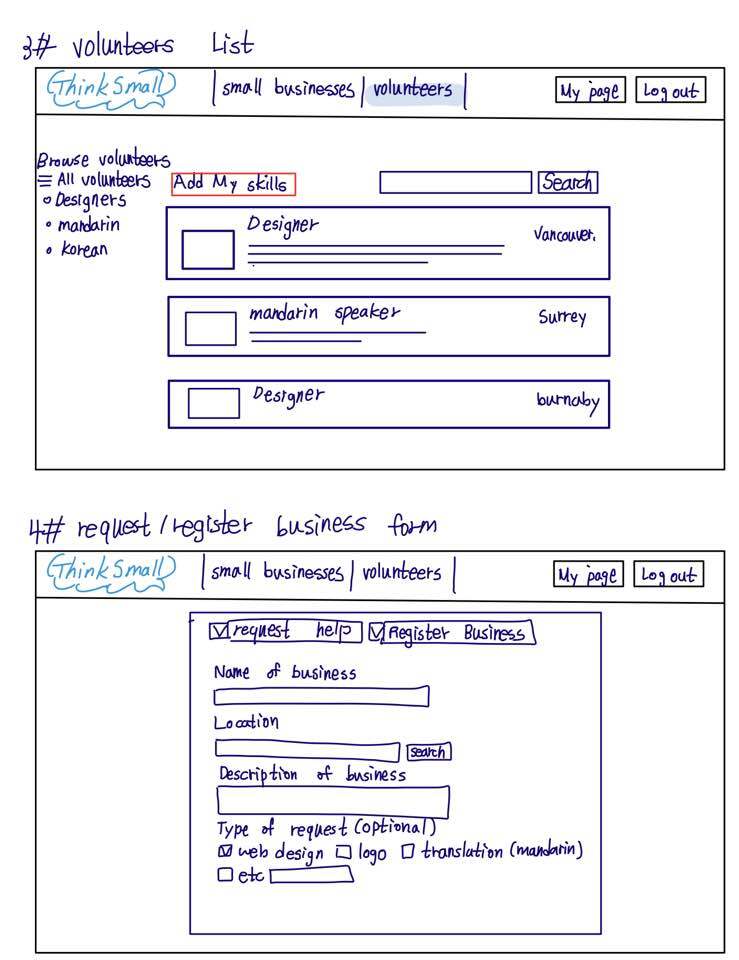 3# volunteers List
ThinkSmall small businesses volunteers My page Log out
Browse volunteers
All volunteers
Designers
mandarin
korean
Add My skills Search
Designer Vancouver.
mandarin speaker Surrey
Designer burnaby
4# request/register business form
ThinkSmall small businesses volunteers My page Log out
request help Register Business
Name of business
Location
search
Description of business
Type of request (optional)
web design logo translation (mandarin)
etc